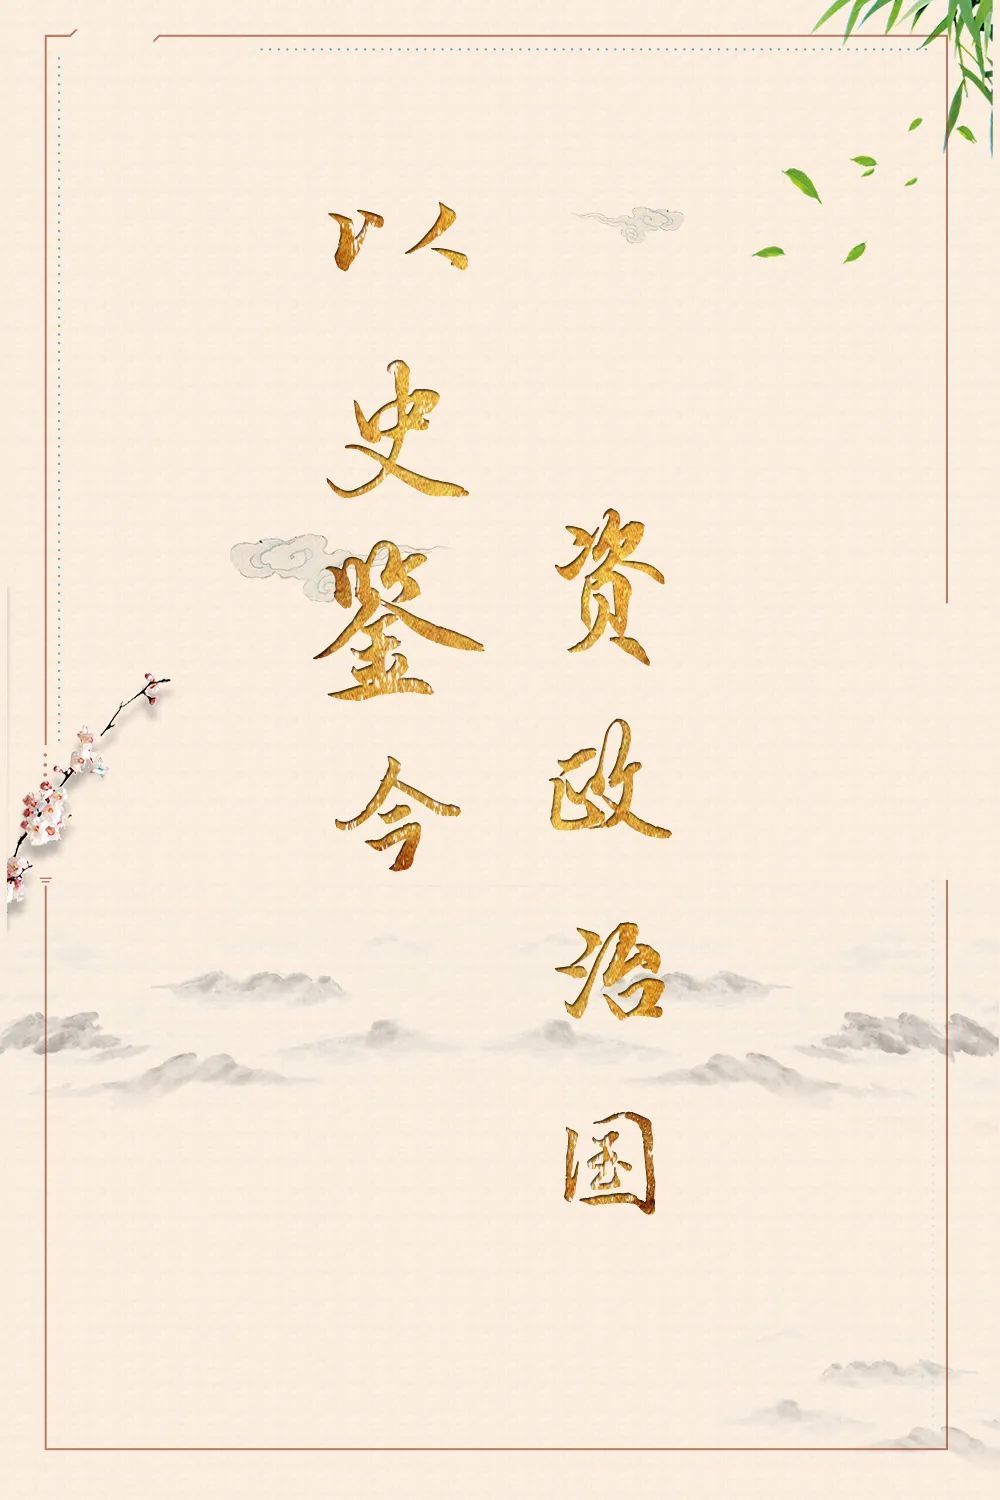 以史鉴今
资政治国